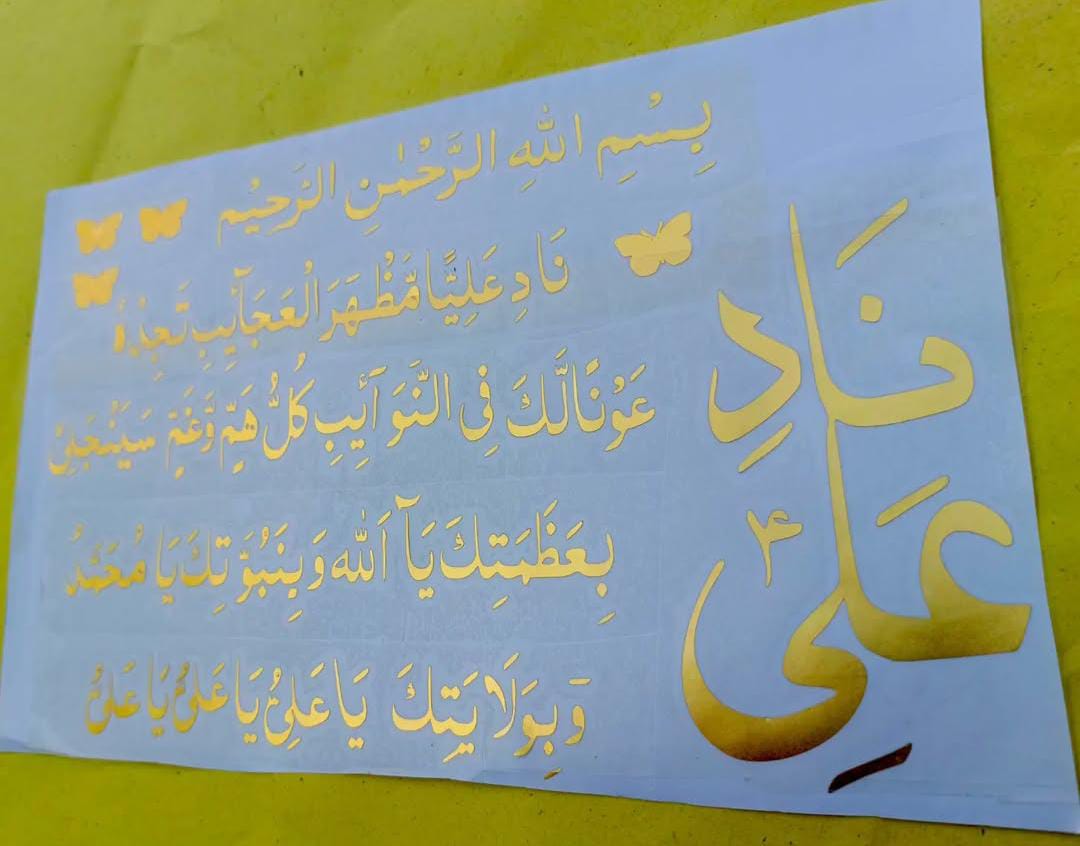 بِسْمِ اللهِ الرَّحْمٰنِ الرَّحِيْمِ
نَادِ عَلِيًّا مَّظْهَرَ الْعَجَآئِبِ تَجِدْهُ
عَوْنًا لَّكَ فِى النَّوَآئِبِ كُلُّ هَمٍّ وَّغَمٍّ سَيَنْجَلِىْ
بِعَظَمَتِكَ يَآ اَللّٰه وَبِنَبُوَّتِكَ يَا مُحَمَّدُ
وَبِوَلَايَتِكَ يَا عَلِىُّ يَا عَلِىُّ يَا عَلِىُّ
نَادِ
عَلِی ؑ